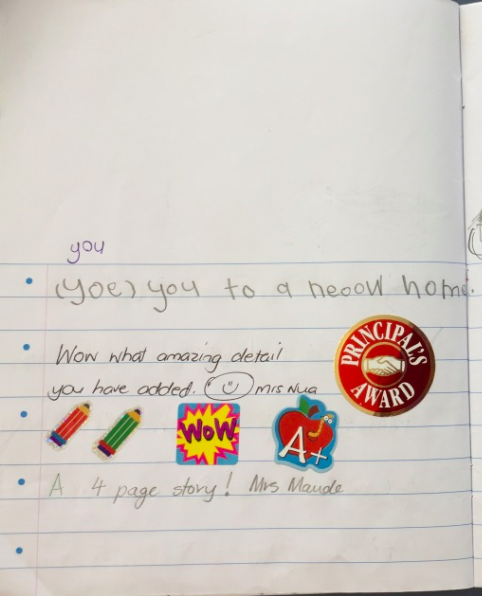 you
(yoe) you to a neoow home.
Wow what amazing detail
you have added. Mrs Nua
PRINCIPAL'S
AWARD
WOW
A+
A 4 page story! Mrs Maude